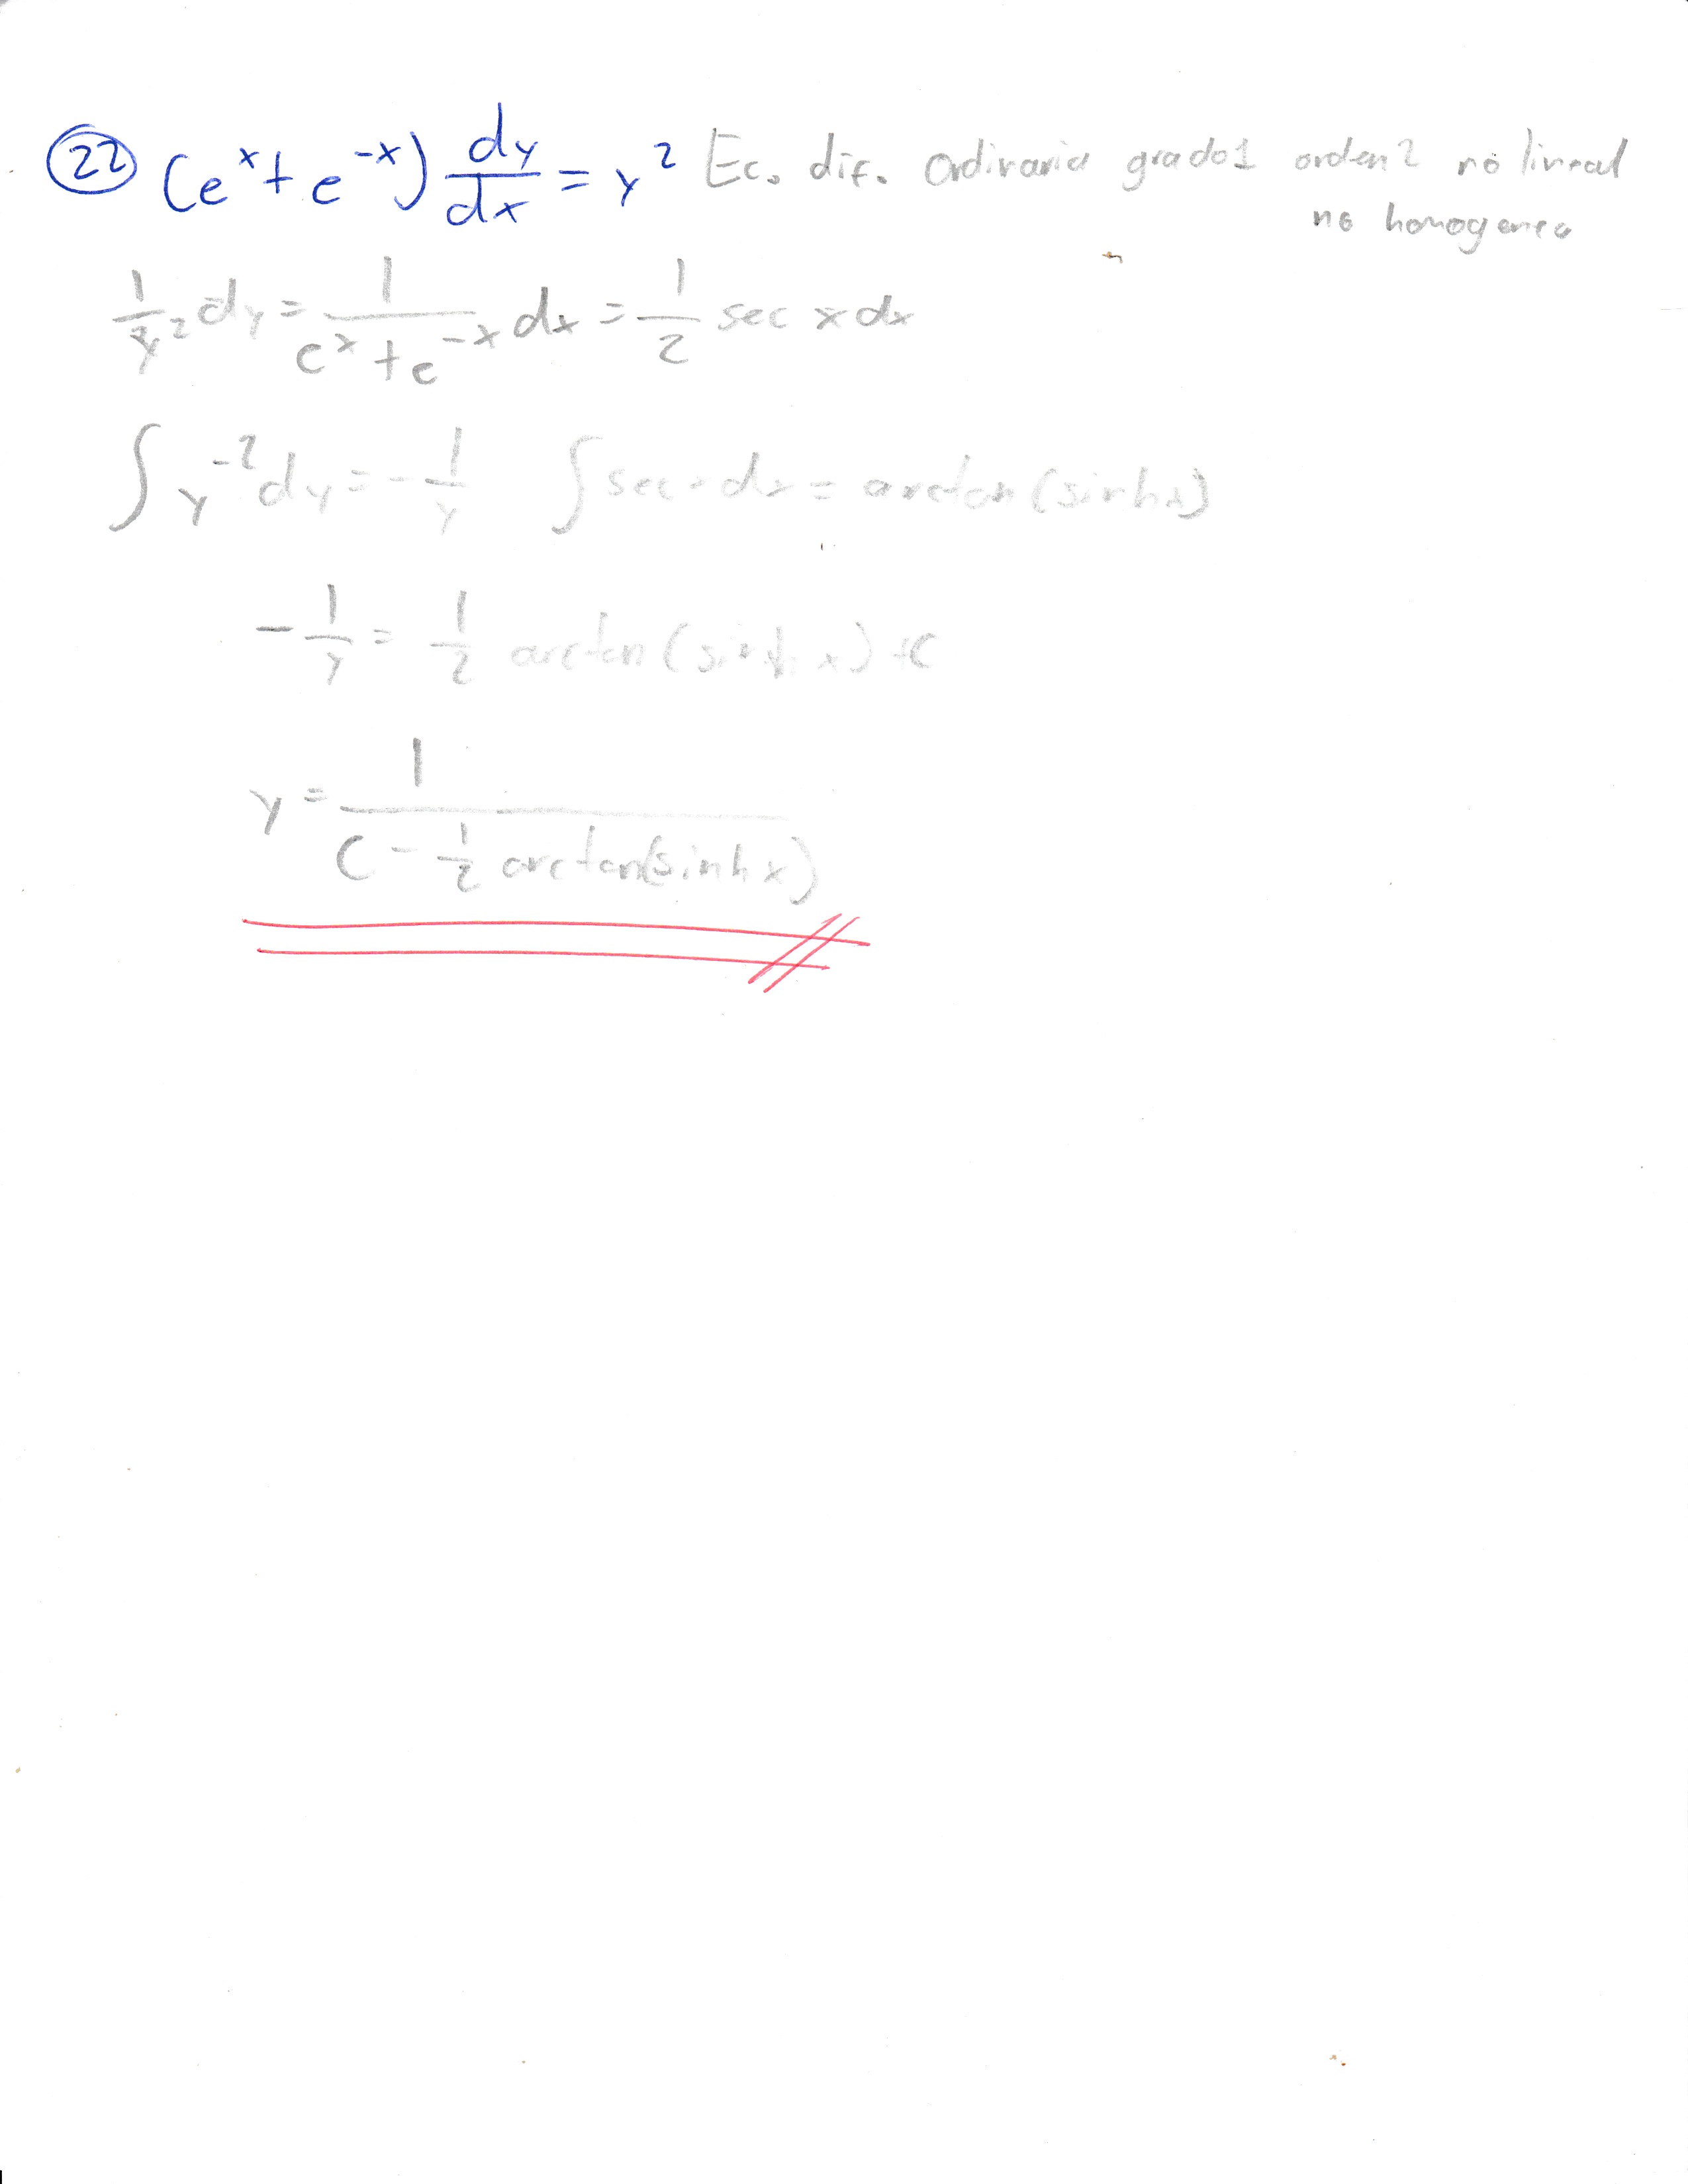 22 (e^x + e^-x) dy/dx = y^2 Ec. dif. Ordinaria grado1 orden2 no lineal
no homogenea
1/y^2 dy = 1/(e^x + e^-x) dx = 1/2 sec x dx
∫ y^-2 dy = - 1/y ∫ sec x dx = arctan (sinhx)
- 1/y = 1/2 arctan (sinh x) + C
y = 1/(C - 1/2 arctan(sinh x))